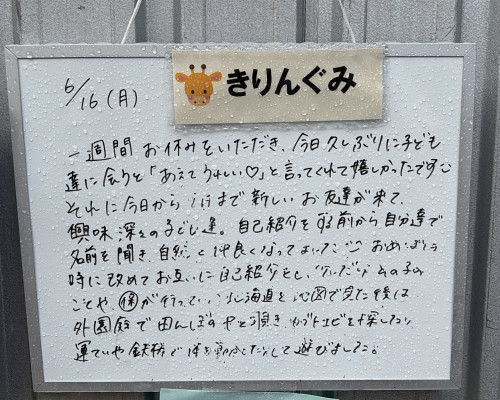 きりんぐみ
6/16(月)
一週間 お休みをいただき、今日久しぶりに子ども
達に会うと「あえてうれしい♡」と言ってくれて嬉しかったです
それに今日から まで新しいお友達が来て、
興味深々の子ども達。自己紹介をする前から自分達で
名前を聞き、自然と仲良くなっていました おあつまりの
時に改めてお互いに自己紹介をし、 その子の
ことや、保が行っていた北海道を地図で見た後は
外園庭で田んぼの中を覗き、カブトエビを探したり
運ていや鉄棒で体を動かしたりして遊びました。